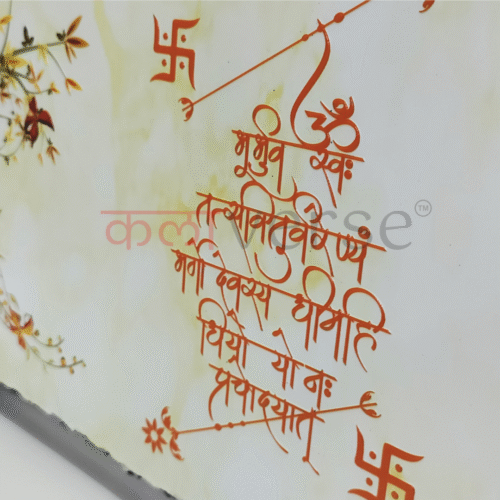 ॐ
भूर्भुव स्वः
तत्सवितुर्वरेण्यं
भर्गो देवस्य धीमहि
धियो यो नः
प्रचोदयात
कलाverse™